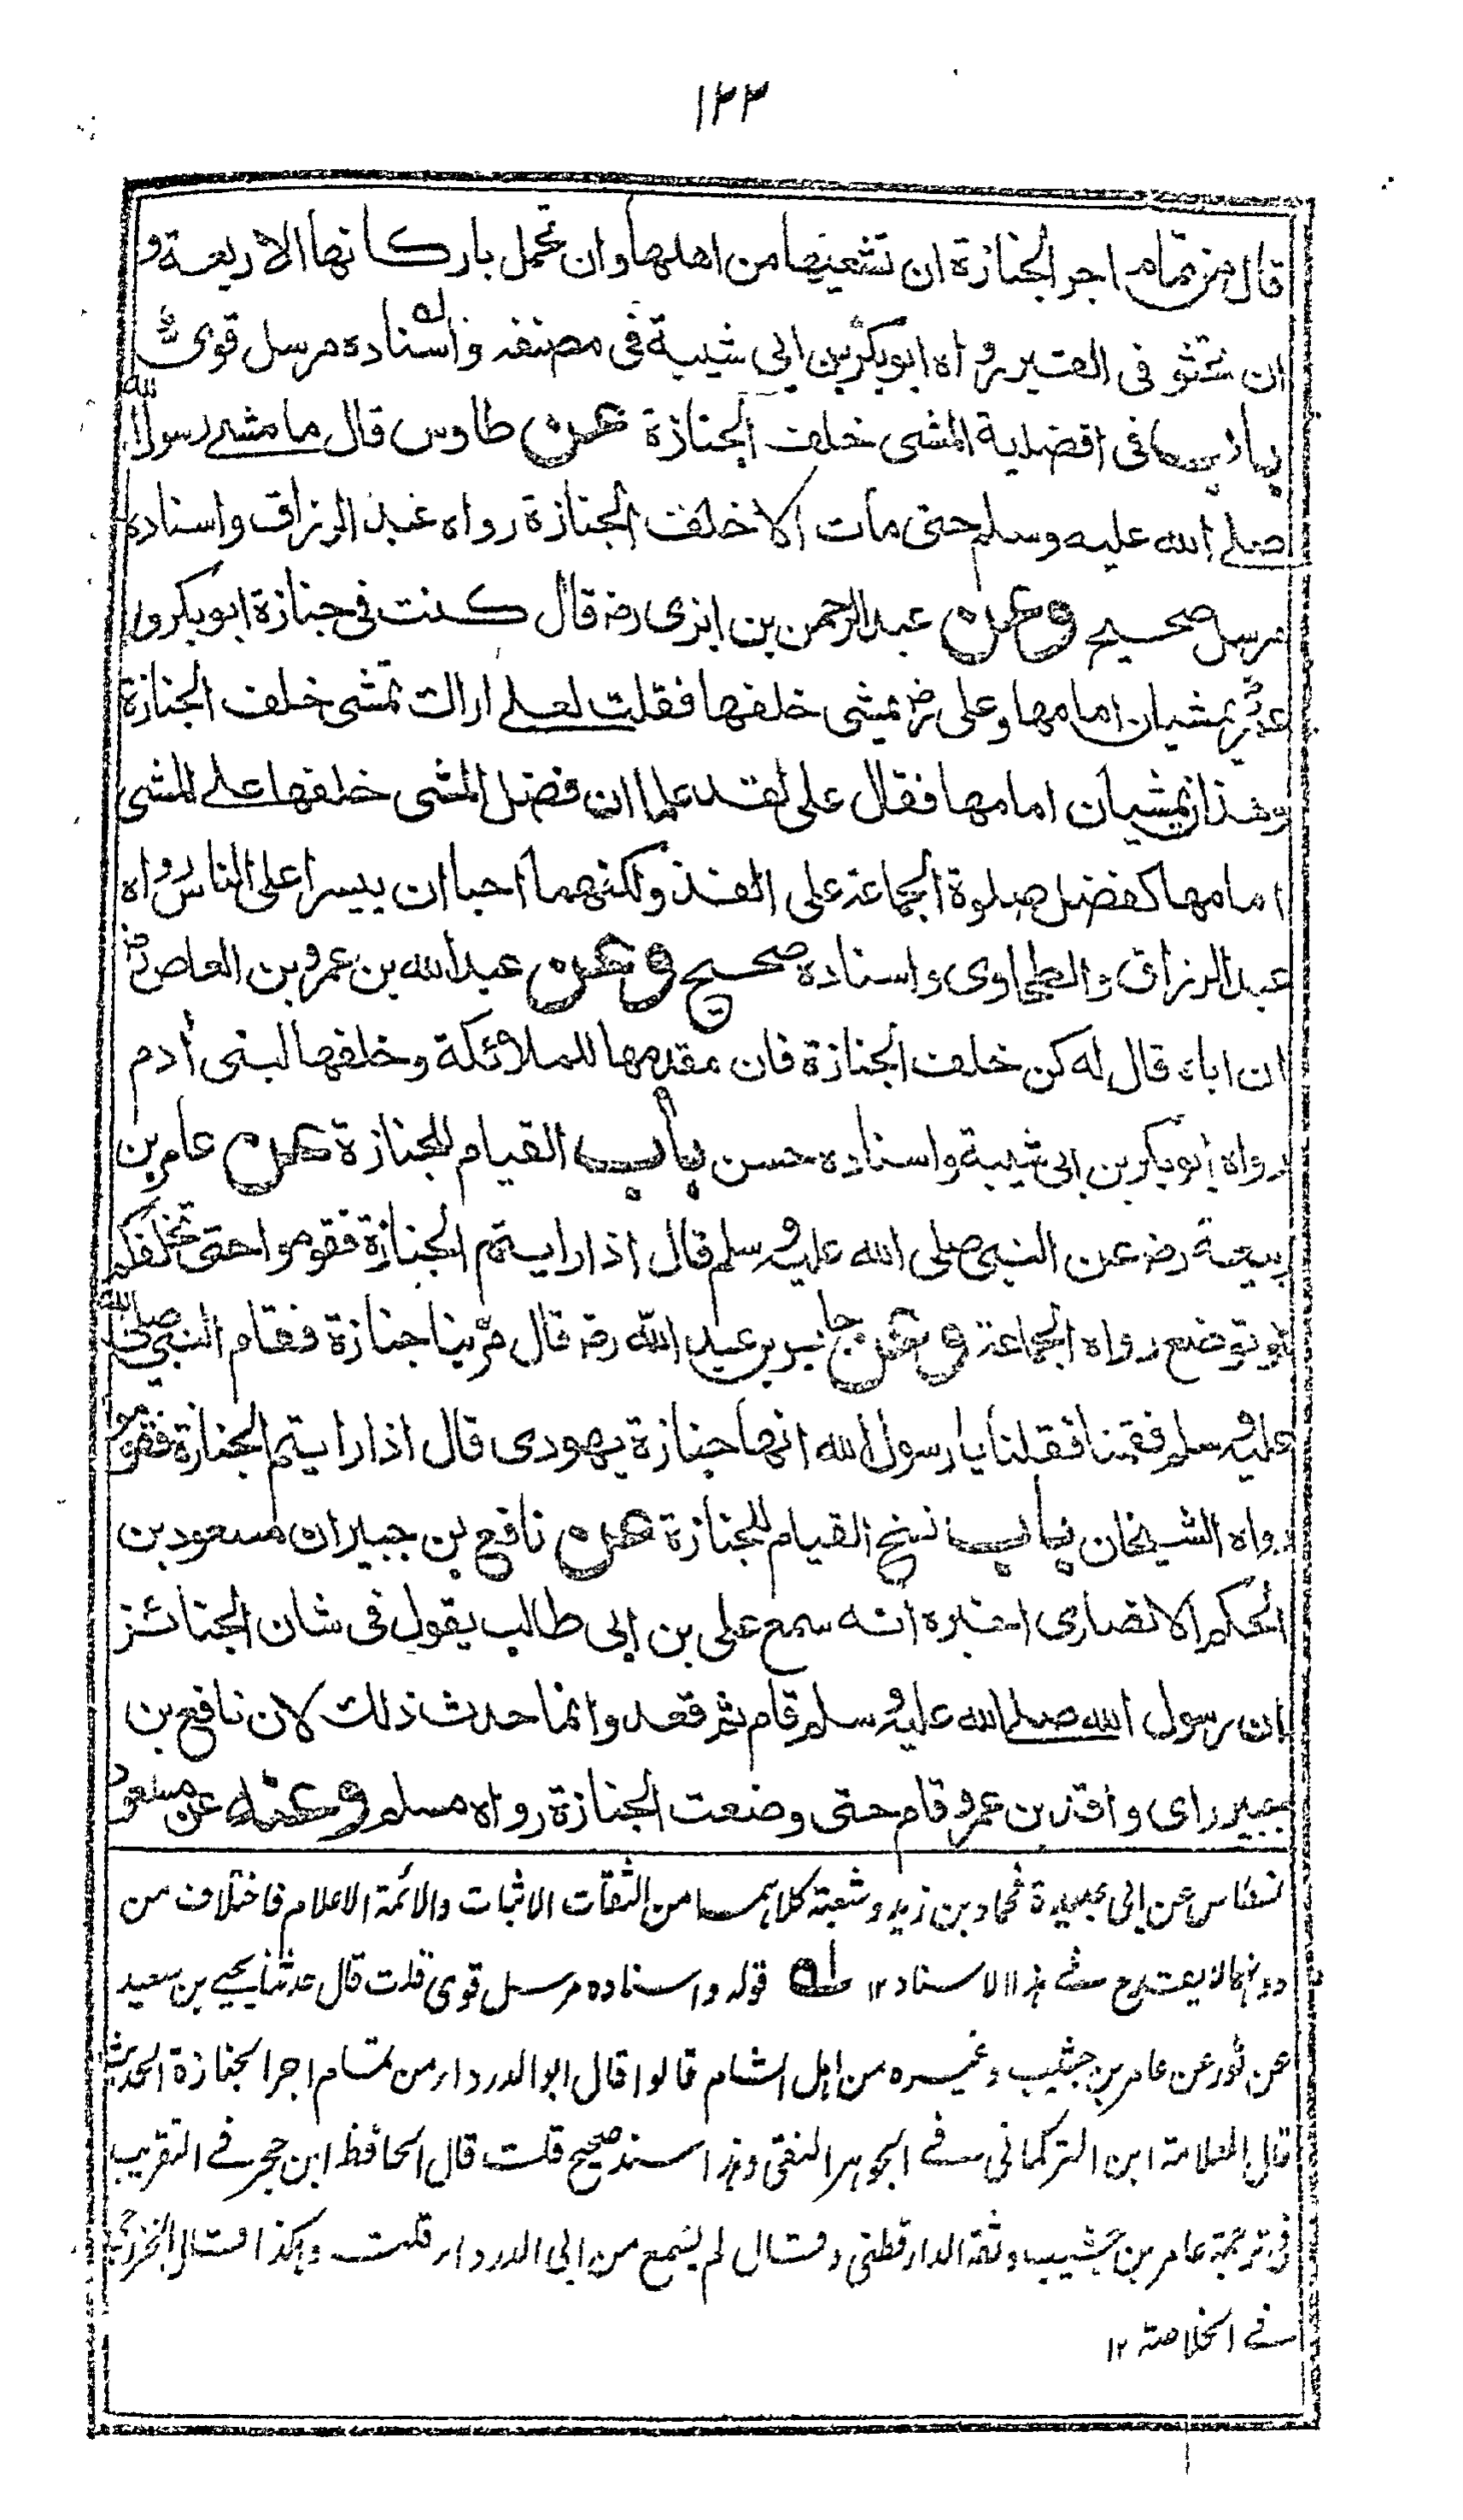 ١٢٣
قال من تمام اجر الجنازة ان تشيعها من اهلها وان تحمل باركانها الاربعة و
ان تحثو فى القبر رواه ابوبكر بن ابى شيبة فى مصنفه واسناده مرسل قوى
باب فى افضلية المشى خلف الجنازة عن طاوس قال ما مشے رسول الله
صلے الله عليه وسلم حتى مات الا خلف الجنازة رواه عبد الرزاق واسناده
مرسل صحيح وعن عبد الرحمن بن ابزى رضـ قال كنت فى جنازة ابوبكر و
عمر يمشيان امامها وعلى رضـ يمشى خلفها فقلت لعلے اراك تمشى خلف الجنازة
وهذان يمشيان امامها فقال على لقد علما ان فضل المشى خلفها علے المشى
امامها كفضل صلوة الجماعة على الفذ ولكنهما احبا ان ييسرا على الناس رواه
عبد الرزاق والطحاوى واسناده صحيح وعن عبد الله بن عمرو بن العاص رضـ
ان اباه قال له كن خلف الجنازة فان مقدمها للملائكة وخلفها لبنى أدم
رواه ابوبكر بن ابى شيبة واسناده حسن باب القيام للجنازة عن عامر بن
ربيعة رضـ عن النبى صلى الله عليه وسلم قال اذا رايتم الجنازة فقوموا حتى تخلفكم
او توضع رواه الجماعة وعن جابر بن عبد الله رضـ قال مر بنا جنازة فقام النبى صلى الله
عليه وسلم فقمنا فقلنا يا رسول الله انها جنازة يهودى قال اذا رايتم الجنازة فقوموا
رواه الشيخان باب نسخ القيام للجنازة عن نافع بن جبير ان مسعود بن
الحكم الانصارى اخبره انه سمع على بن ابى طالب يقول فى شان الجنائز
ان رسول الله صلے الله عليه وسلم قام ثم قعد وانما حدث ذلك لان نافع بن
جبير راى واقد بن عمرو قام حتى وضعت الجنازة رواه مسلم وعنه عن مسعود
نسطاس عن ابى عبيدة فحماد بن زيد وشعبة كلاهما من الثقات الاثبات والائمة الاعلام فاختلاف من
دونهما لا يقدح فے هذا الاسناد ١٢ له قوله واسناده مرسل قوى قلت قال حدثنا يحيے بن سعيد
عن ثور عن عامر بن جشيب وغيره من اهل الشام قالوا قال ابو الدرداء من تمام اجر الجنازة الحديث
قال العلامة ابن التركمانى فے الجوهر النقى وهذا سند صحيح قلت قال الحافظ ابن حجر فے التقريب
فى ترجمة عامر بن جشيب وثقه الدارقطنى وقال لم يسمع من ابى الدرداء قلت وهكذا قال الخزرجى
فے الخلاصة ١٢